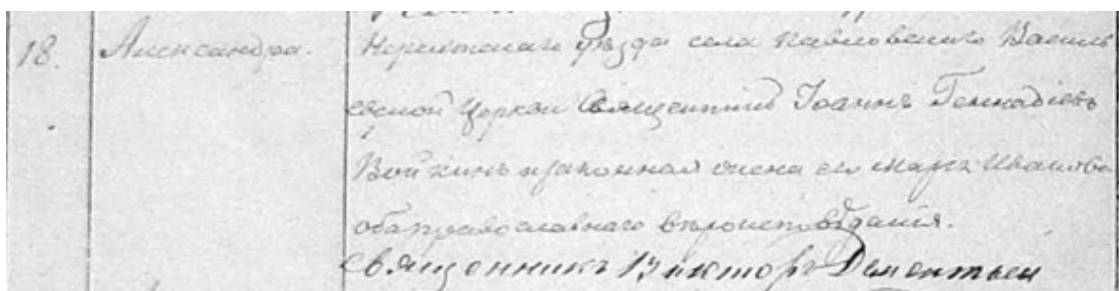 18. Александра. Нерехтскаго уѣзда села Павловскаго Василь
евской Церкви Священникъ Іоаннъ Геннадіевъ
Войкинъ и законная жена его Марія Иванова
оба православнаго вѣроисповѣданія.
Священникъ Викторъ Дементьев